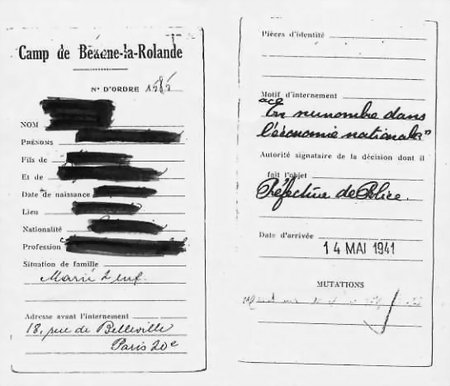 Camp de Beaune-la-Rolande
N° D'ORDRE
NOM
PRÉNOMS
Fils de
Et de
Date de naissance
Lieu
Nationalité
Profession
Situation de famille
Marié 2 enf.
Adresse avant l'internement
18, rue de Belleville
Paris 20e
Pièces d'identité
Motif d'internement
"En surnombre dans
l'économie nationale"
Autorité signataire de la décision dont il
fait l'objet
Préfecture de Police.
Date d'arrivée
14 MAI 1941
MUTATIONS